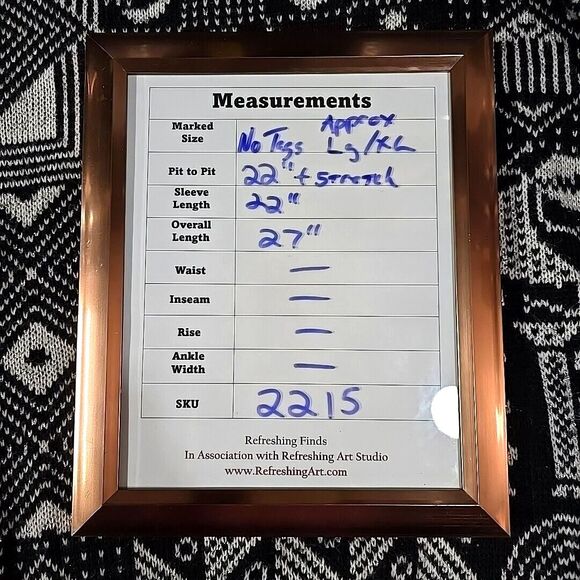 Measurements
Marked Size No Tags Approx Lg/XL
Pit to Pit 22" + Stretch
Sleeve Length 22"
Overall Length 27"
Waist —
Inseam —
Rise —
Ankle Width —
SKU 2215
Refreshing Finds
In Association with Refreshing Art Studio
www.RefreshingArt.com